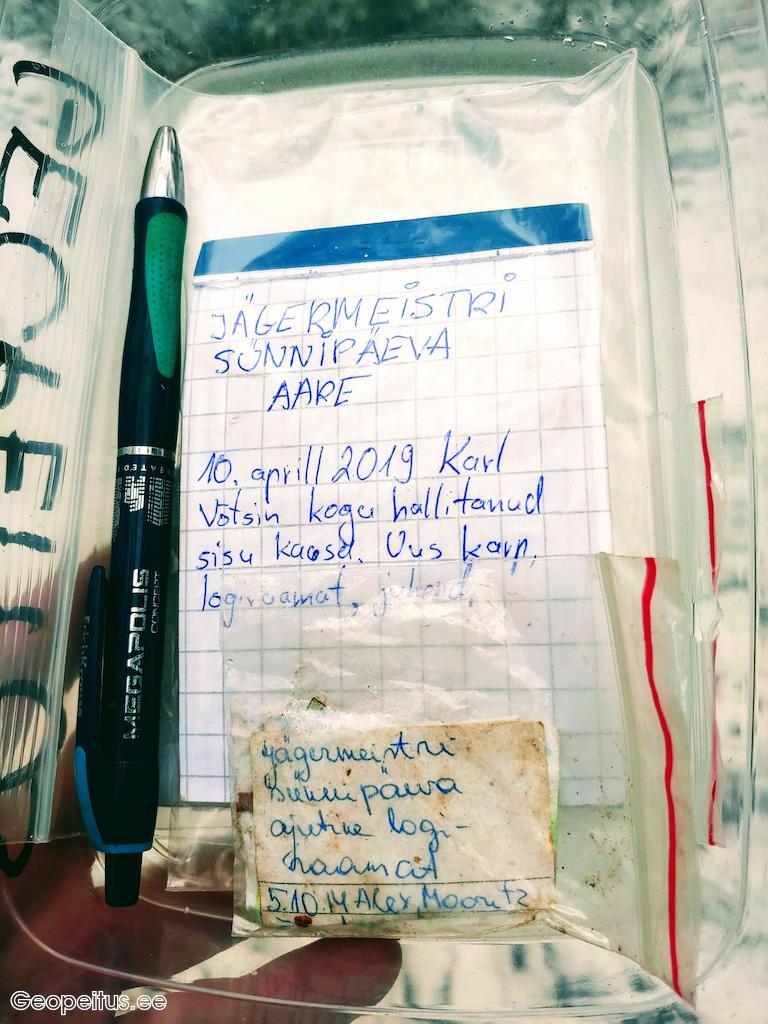 GEOPEITUS
JÄGERMEISTRI
SÜNNIPÄEVA
AARE
10. aprill 2019 Karl
Võtsin kogu hallitanud
sisu kaasa. Uus karp,
logiraamat, juhend.
MEGAPOLIS
CONCEPT
Jägermeistri
Sünnipäeva
ajutine logi-
raamat
5.10.14 Alex, Mooritz
Geopeitus.ee